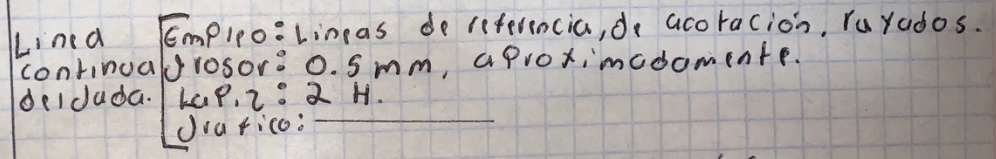 Linea
continua
delgada.
Empleo: Lineas de referencia, de acotación, rayados.
grosor: 0.5 mm, aproximadamente.
Lapiz: 2 H.
Grafico: